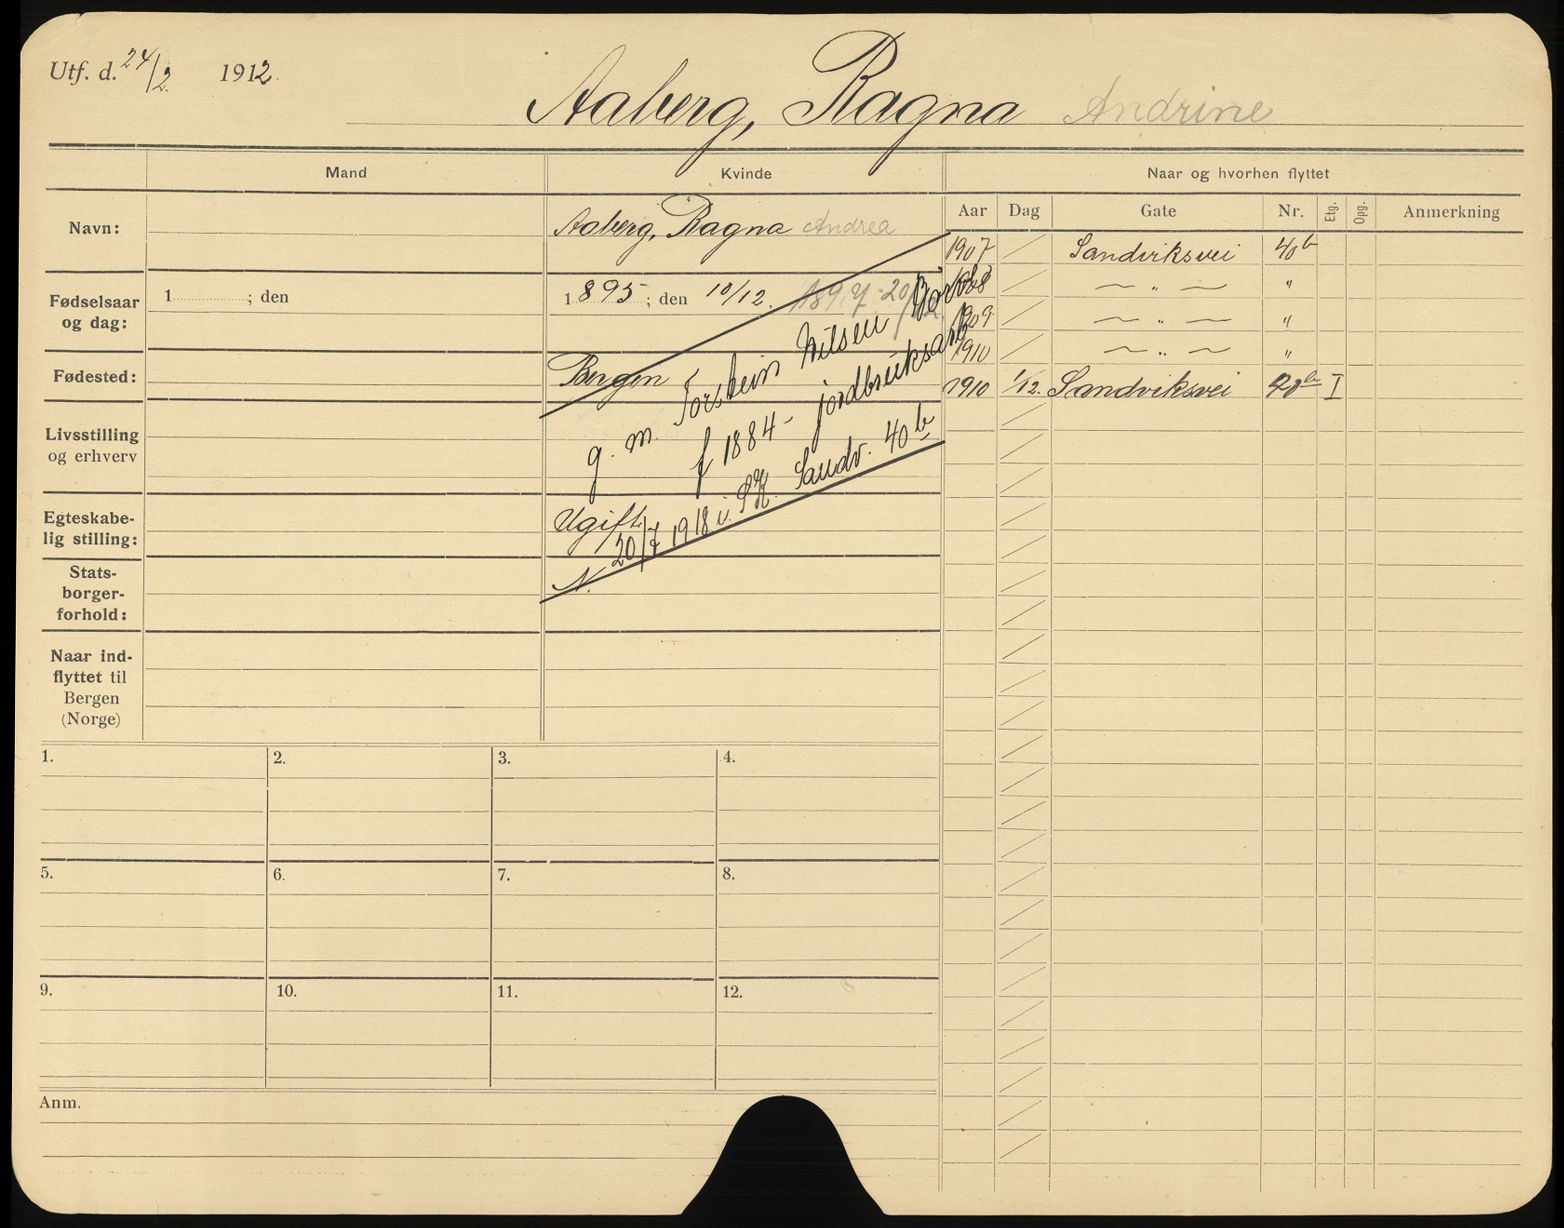 Utf. d. 24/2 1912
Aaberg, Ragna Andrine
Mand
Kvinde
Naar og hvorhen flyttet
Aar Dag Gate Nr. Etg. Opg. Anmerkning
Navn:
Aaberg, Ragna Andrea
Fødselsaar
og dag:
1 ; den
1895; den 10/12. 1897-20/12.
Fødested:
Bergen
g. m. Torstein Nilsen
f 1884 - jordbruksarb
20/7 1918 i. Sk. Sandv. 40 b
Livsstilling
og erhverv
Egteskabe-
lig stilling:
Ugift
Stats-
borger-
forhold:
N.
Naar ind-
flyttet til
Bergen
(Norge)
1907 Sandviksvei 40b
1908 — „ — "
1909 — „ — "
1910 — „ — "
1910 1/12. Sandviksvei I
1. 2. 3. 4.
5. 6. 7. 8.
9. 10. 11. 12.
Anm.